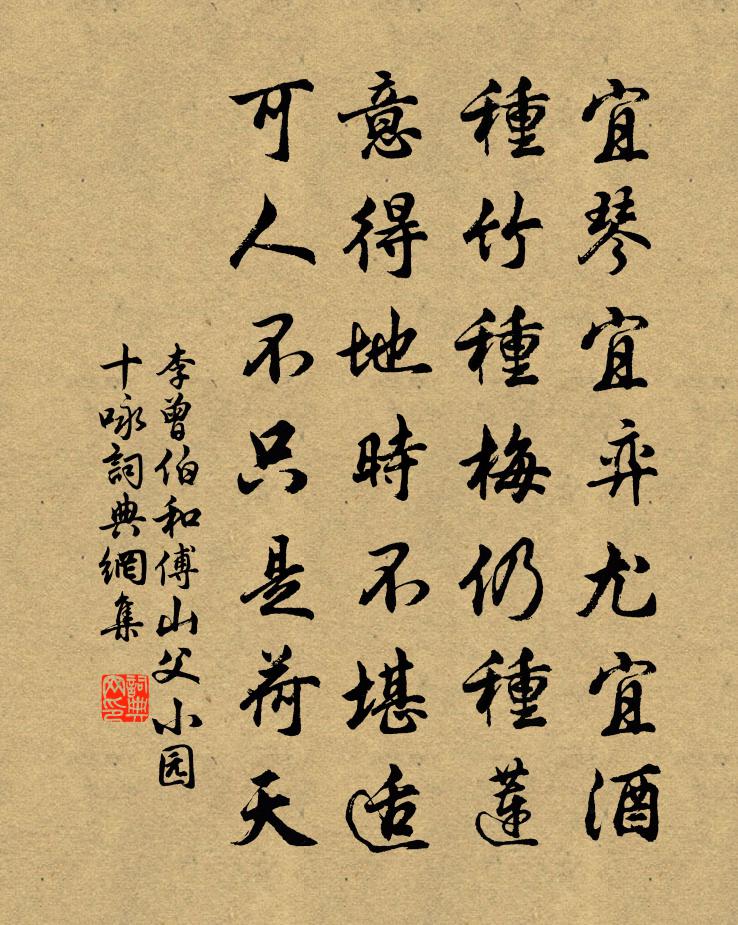 宜琴宜弈尤宜酒
種竹種梅仍種蓮
意得地時不堪适
可人不只是荷天
李曾伯和傅山父小园
十咏詞典網集
詞典网印